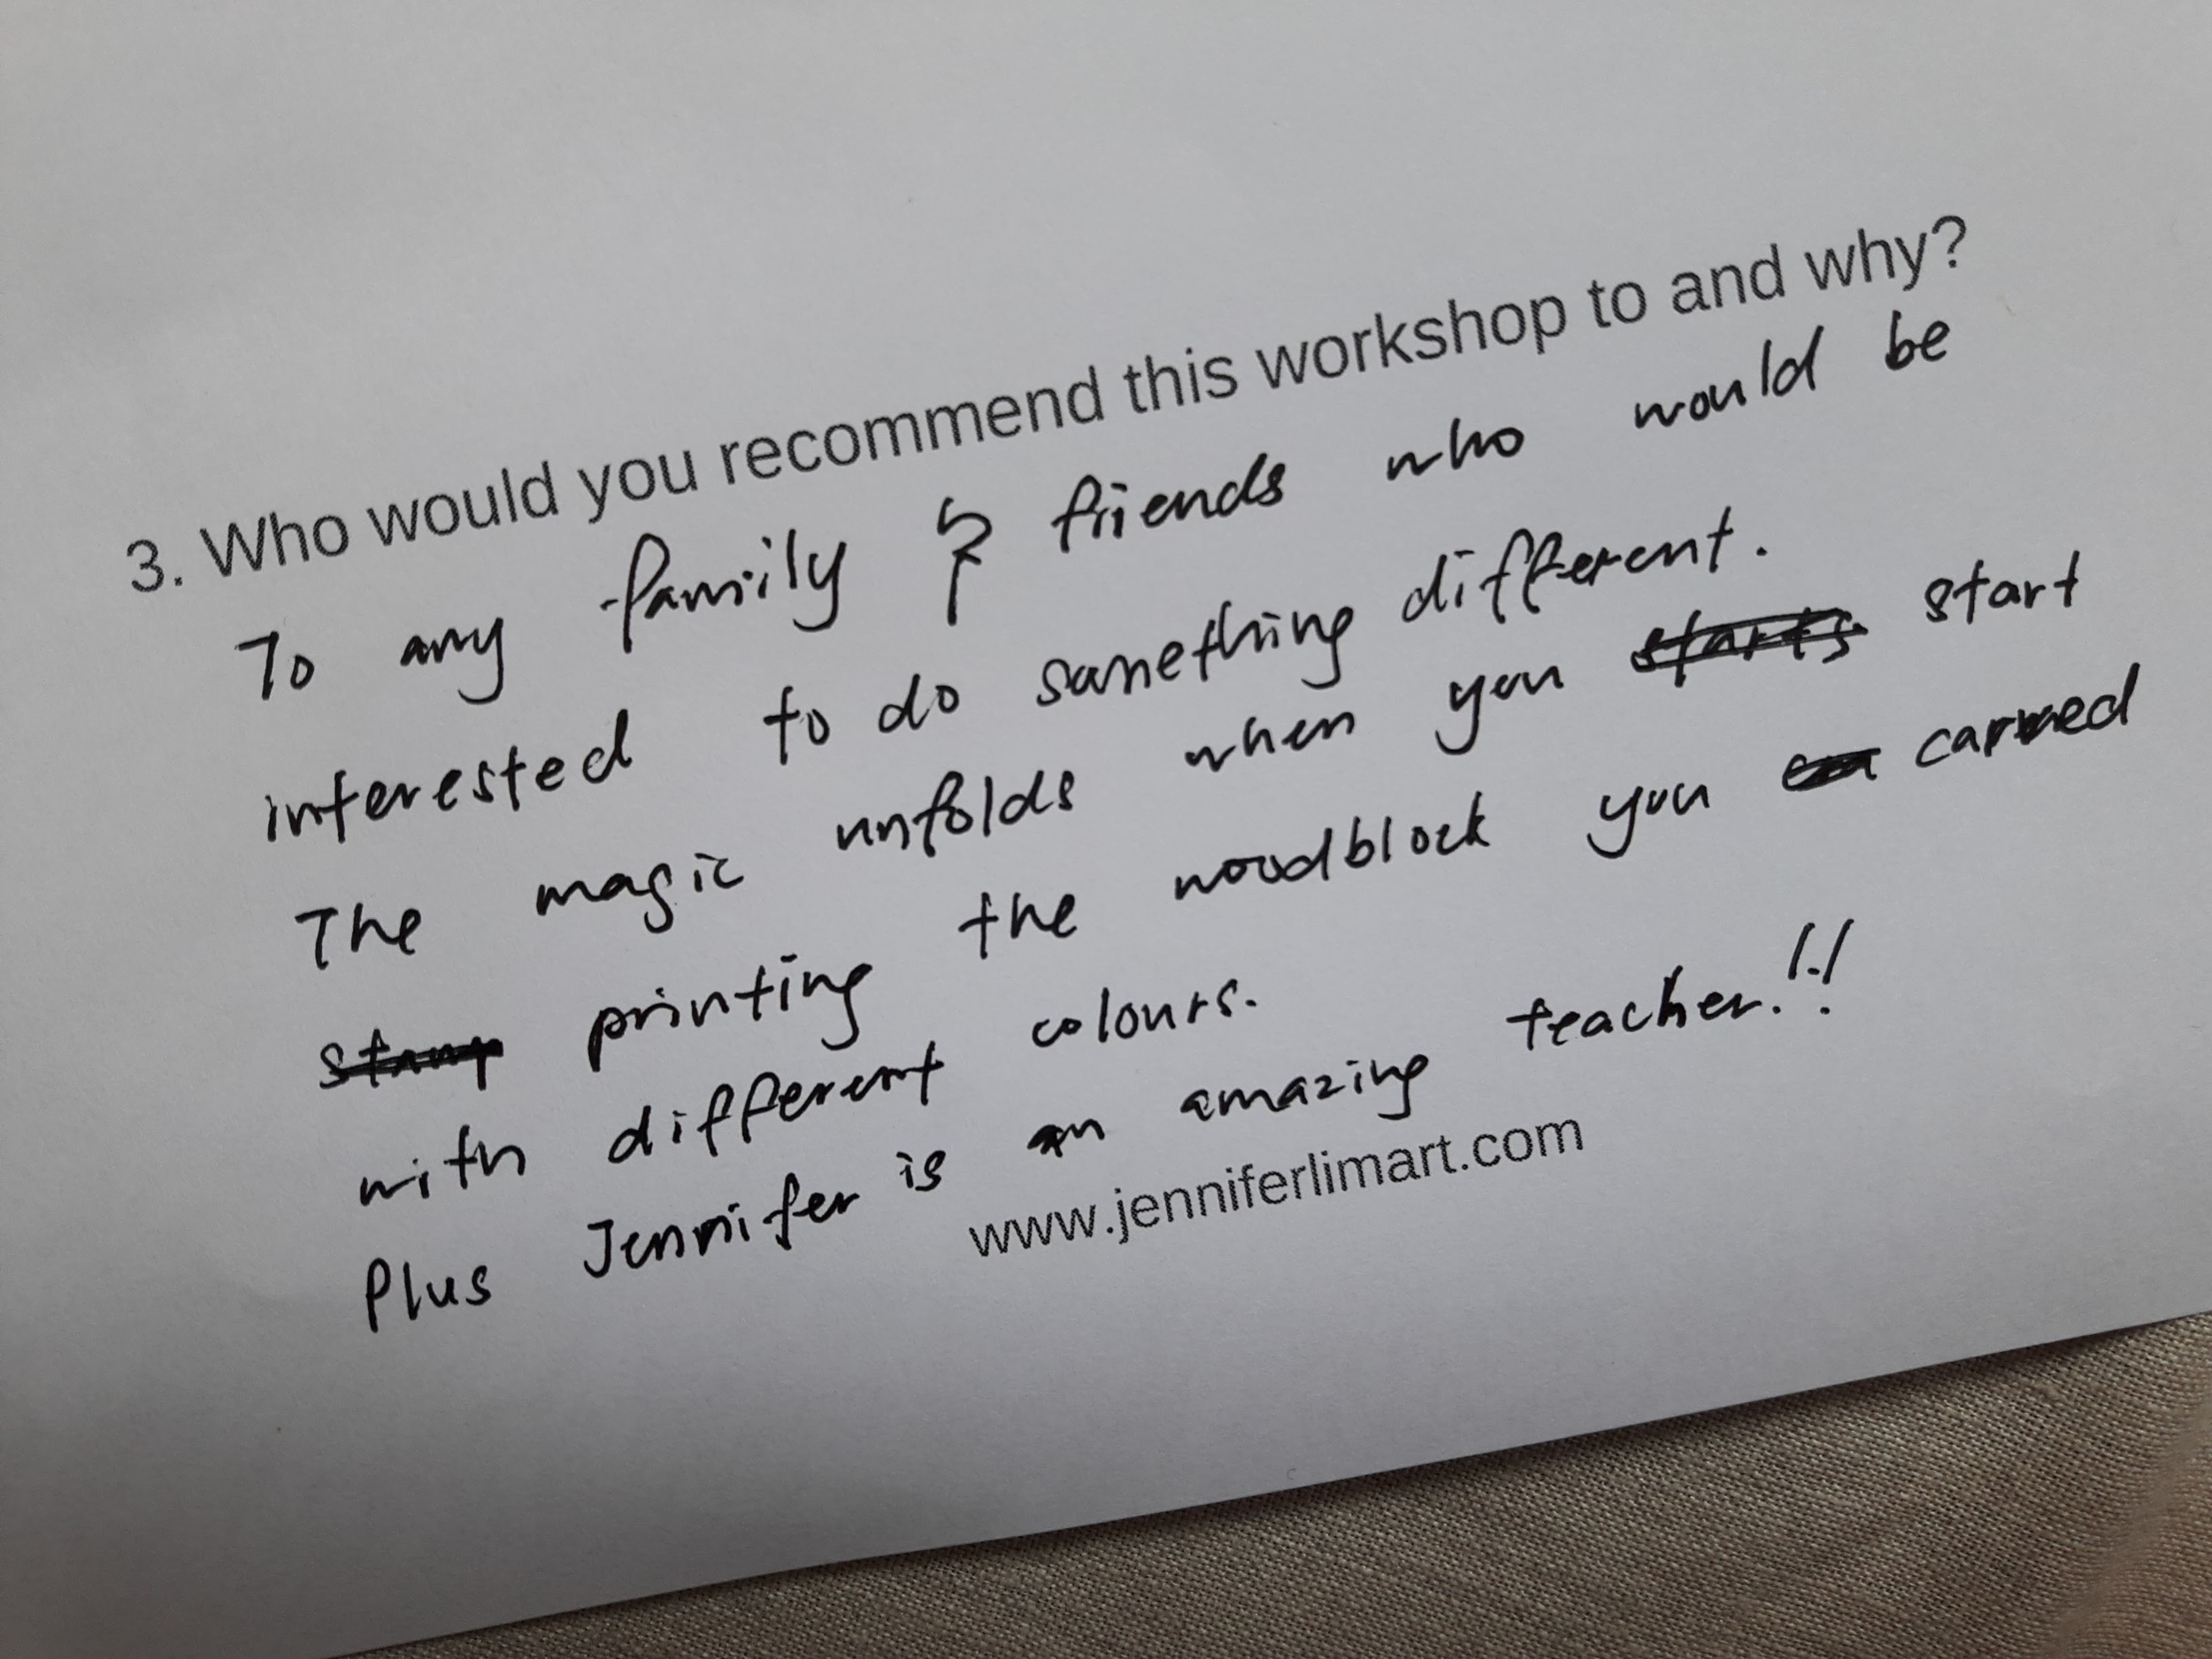 3. Who would you recommend this workshop to and why?
To any family & friends who would be
interested to do something different.
The magic unfolds when you starts start
stamp printing the woodblock you carved
with different colours.
Plus Jennifer is an amazing teacher!!!
www.jenniferlimart.com